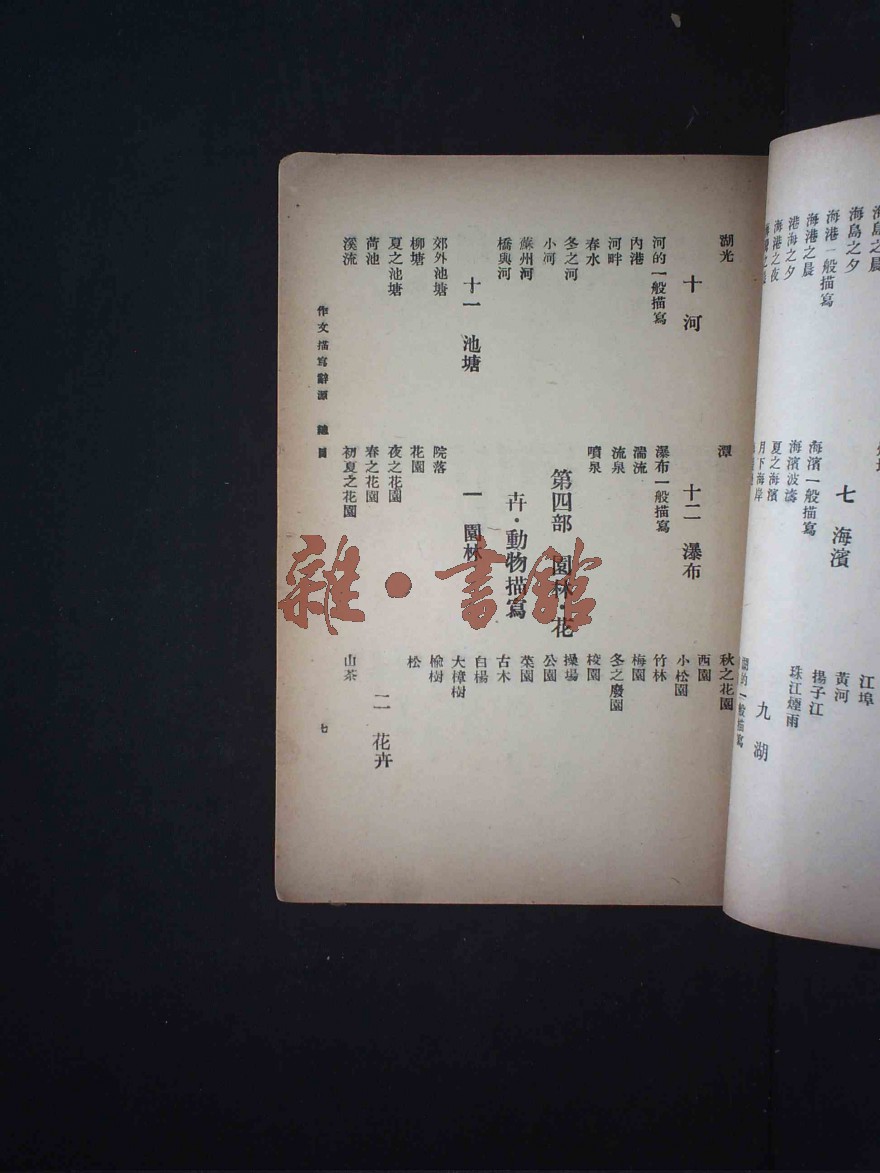 海島之晨
海島之夕
海港一般描寫
海港之晨
港海之夕
海港之夜
七 海濱
海濱一般描寫
海濱波濤
夏之海濱
月下海岸
江埠
黃河
揚子江
珠江煙雨
九 湖
湖的一般描寫
湖光
十 河
河的一般描寫
內港
河畔
春水
冬之河
小河
蘇州河
橋與河
十一 池塘
郊外池塘
柳塘
夏之池塘
荷池
溪流
潭
十二 瀑布
瀑布一般描寫
湍流
流泉
噴泉
第四部 園林·花
卉·動物描寫
一 園林
院落
花園
夜之花園
春之花園
初夏之花園
秋之花園
西園
小松園
竹林
梅園
冬之廢園
校園
操場
公園
菜園
古木
白楊
大樟樹
榆樹
松
二 花卉
山茶
作文描寫辭源 總目
七
雜·書館